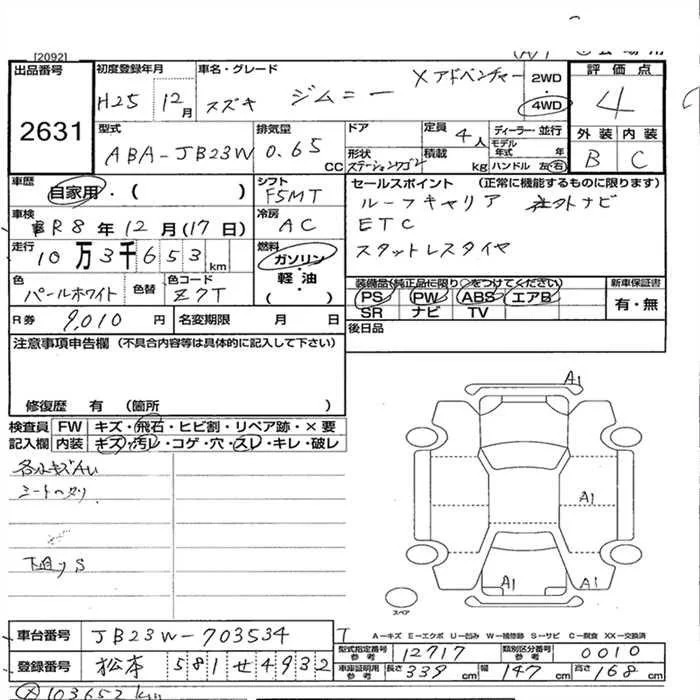 [2092]
出品番号
2631
初度登録年月
H25 12月
車名・グレード
スズキ ジムニー Xアドベンチャー
2WD
4WD
評価点
4
外装 内装
B C
型式
ABA-JB23W
排気量
0.65 CC
ドア
形状
ステーションワゴン
定員 4人
積載 kg
ディーラー・並行
モデル年式 年
ハンドル 左 右
車歴
自家用・( )
シフト
F5MT
セールスポイント (正常に機能するものに限ります)
ルーフキャリア 社外ナビ
ETC
スタットレスタイヤ
車検
R8年12月(17日)
冷房
AC
走行
10万3千653km
燃料
ガソリン・
軽油・
( )
色
パールホワイト
色替
色コード
Z7T
装備品(純正品に限り○をつけてください)
PS PW ABS エアB
SR ナビ TV
新車保証書
有・無
R券 9,010円
名変期限 月 日
後日品
注意事項申告欄 (不具合内容等は具体的に記入して下さい)
修復歴 有 (箇所 )
検査員 FW キズ・飛石・ヒビ割・リペア跡・×要
記入欄 内装 キズ・汚レ・コゲ・穴・スレ・キレ・破レ
シートヘタリ
下廻りS
A1
A1
A1
A1
スペア
車台番号
JB23W-703534
A-キズ E-エクボ U-凹み W-補修跡 S-サビ C-腐食 XX-交換済
型式指定番号
参考
12717
類別区分番号
参考
0010
登録番号
松本 581 せ 4932
車庫証明用
参考
長さ 339cm
幅 147cm
高さ 168cm
103652km